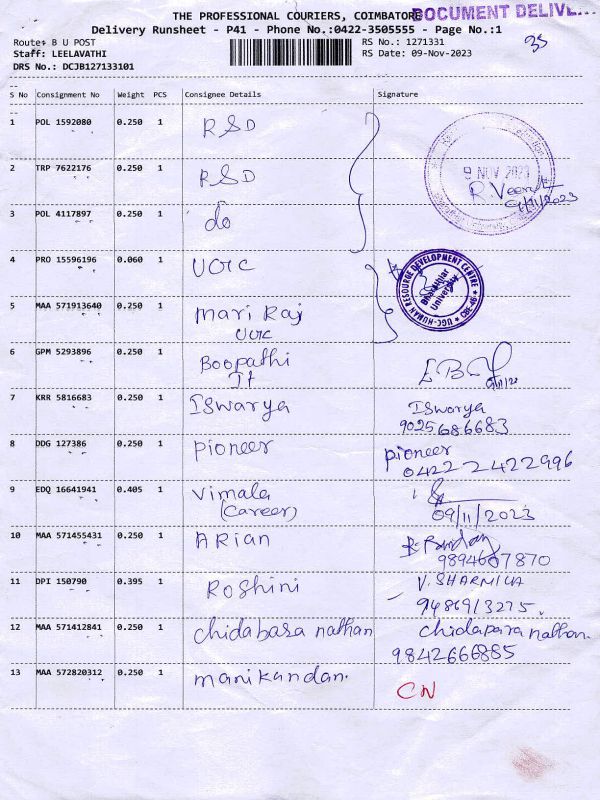 THE PROFESSIONAL COURIERS, COIMBATORE
DOCUMENT DELIVE
Delivery Runsheet - P41 - Phone No.:0422-3505555 - Page No.:1
Route: B U POST
RS No.: 1271331
35
Staff: LEELAVATHI
RS Date: 09-Nov-2023
DRS No.: DCJB127133101
S No Consignment No Weight PCS Consignee Details Signature
1 POL 1592080 0.250 1 RSD
2 TRP 7622176 0.250 1 RSD
9 NOV 2023
R. Veera
9/11/2023
3 POL 4117897 0.250 1 do
4 PRO 15596196 0.060 1 UGC
UGC-HUMAN RESOURCE DEVELOPMENT CENTRE
Bharathiar
University
5 MAA 571913640 0.250 1 Mari Raj
UGC
6 GPM 5293896 0.250 1 Boopathi
It
7 KRR 5816683 0.250 1 ISwarya ISwarya
9025686683
8 DDG 127386 0.250 1 Pioneer Pioneer
0422 2422996
9 EDQ 16641941 0.405 1 Vimala
(Career) 09/11/2023
10 MAA 571455431 0.250 1 ARian
9894607870
11 DPI 150790 0.395 1 Roshini V. SHARMILA
9486913275.
12 MAA 571412841 0.250 1 Chidabasa nathan Chidapara nathan
9842666885
13 MAA 572820312 0.250 1 Manikandan. CN